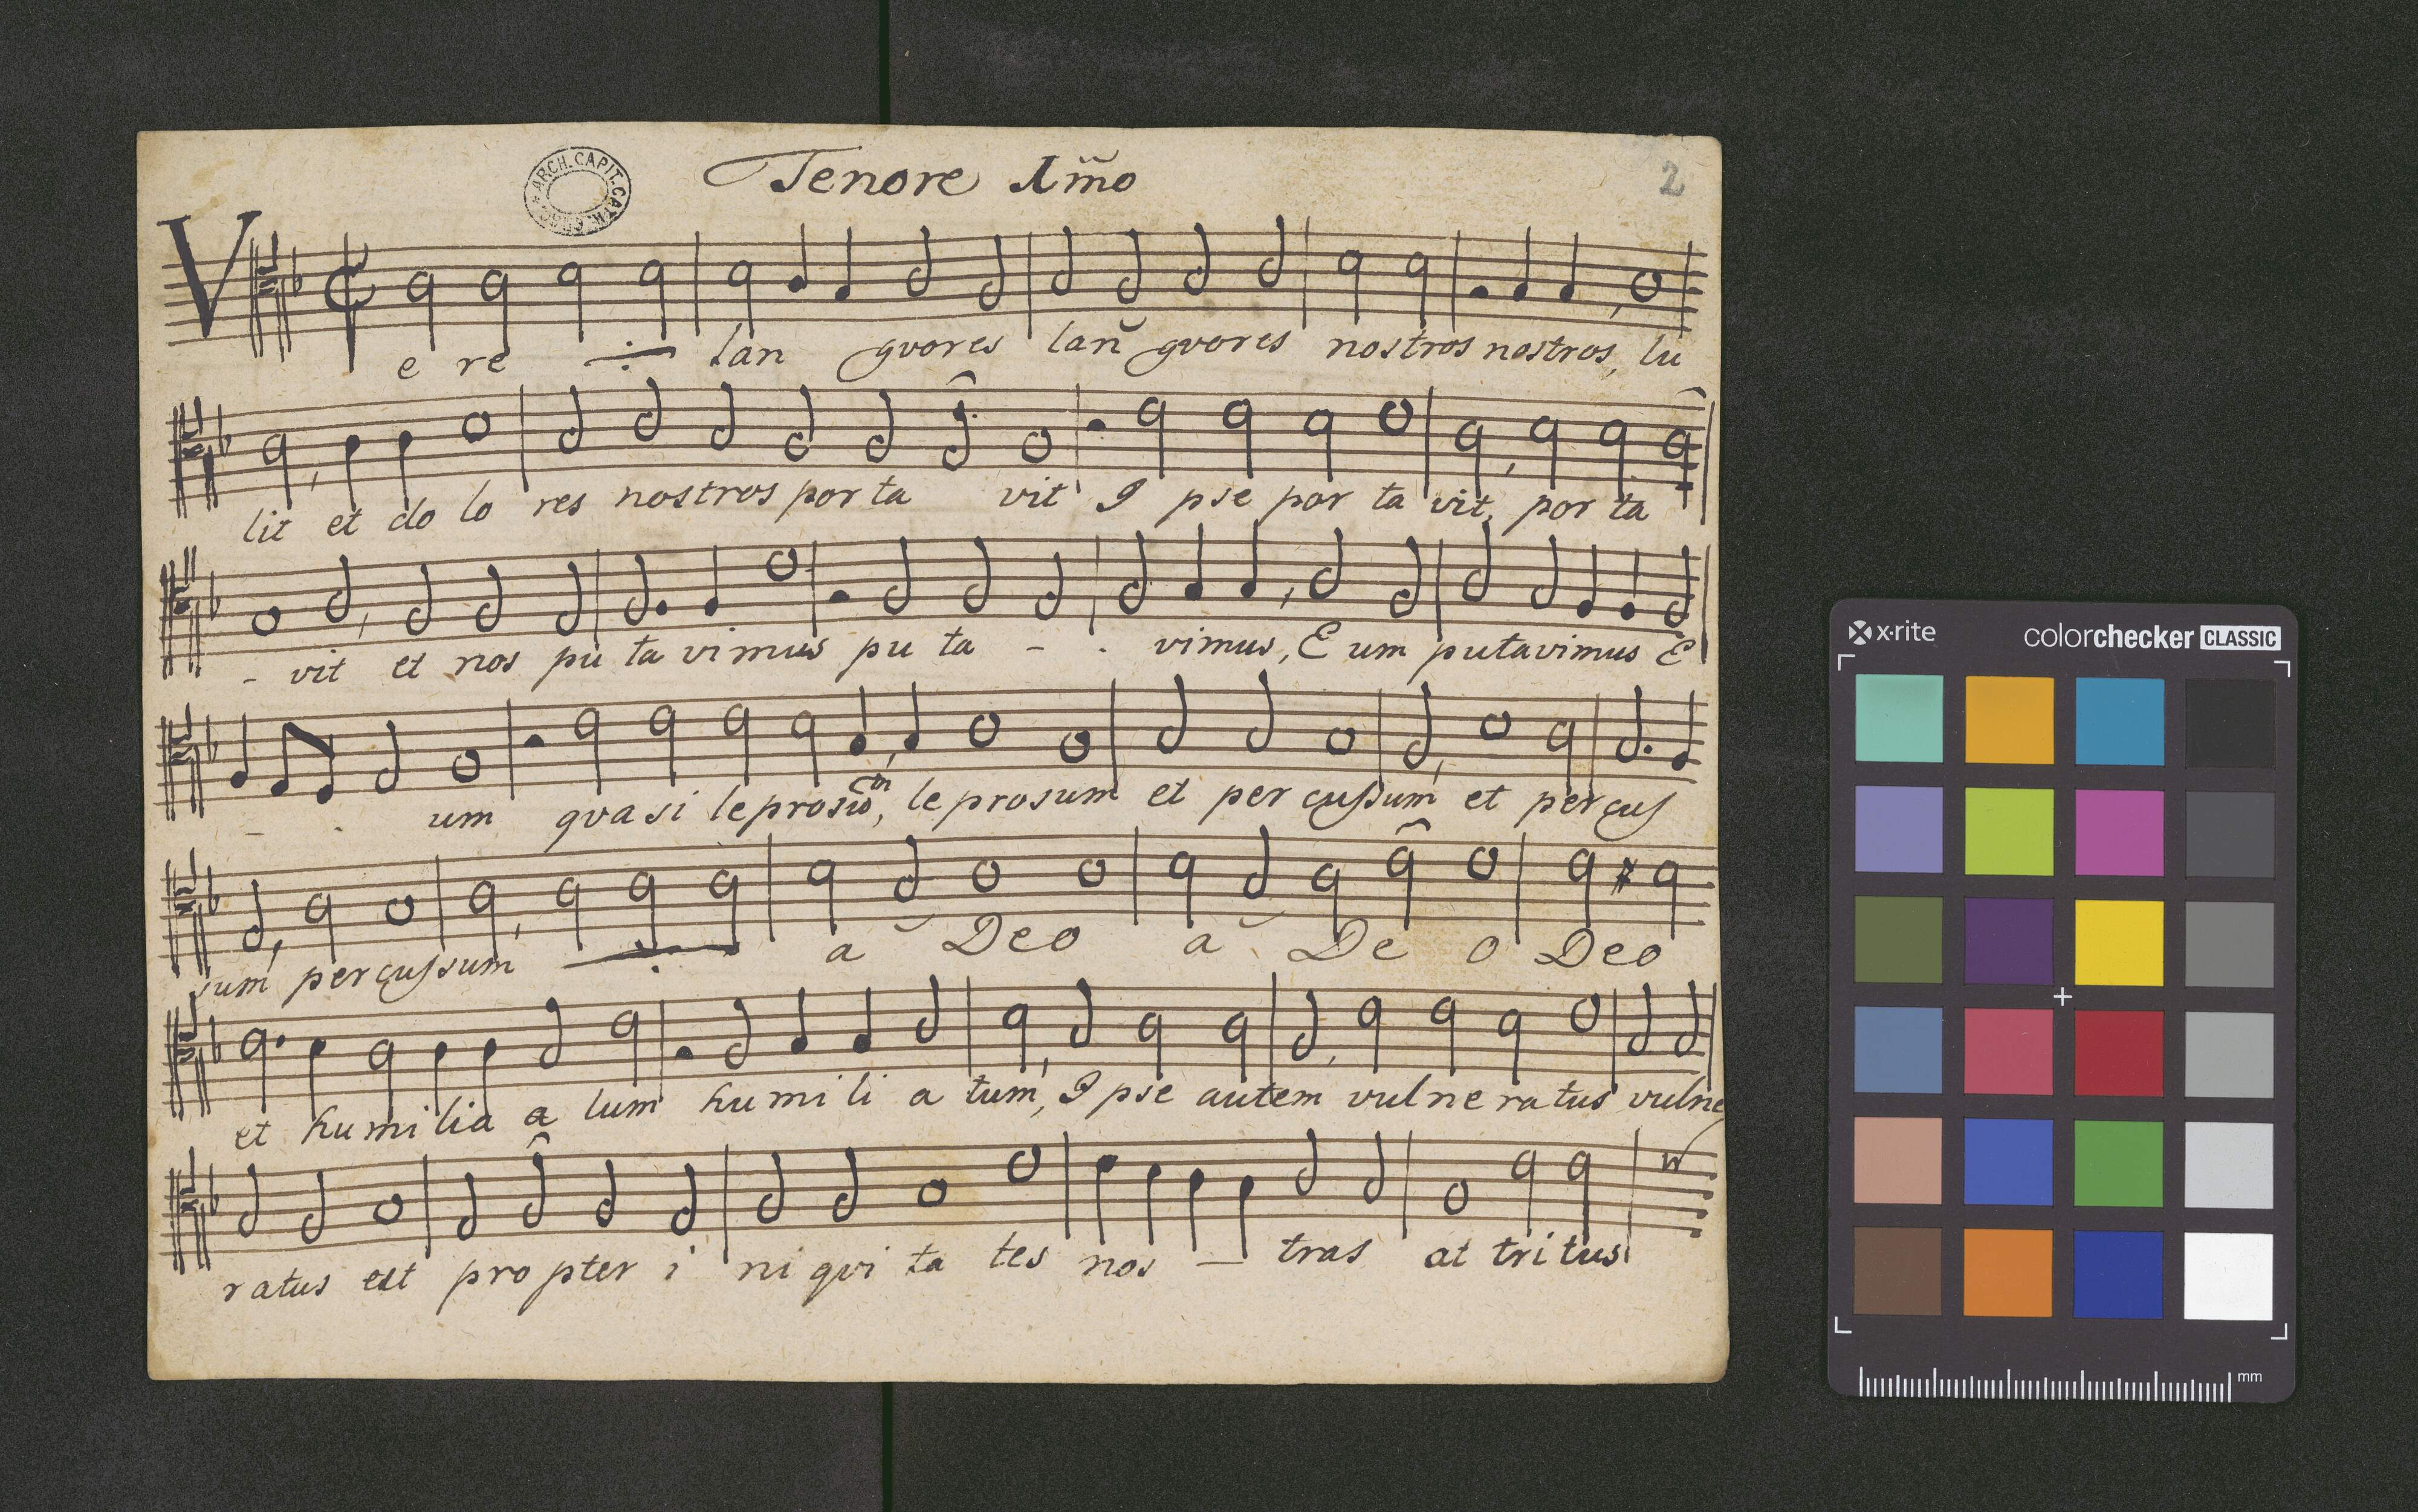 Tenore Im̃o
2
ARCH. CAPIT. CATH.
V e re lan gvores lan gvores nostros nostros, lu
lit et do lo res nostros por ta vit I pse por ta vit, por ta
- vit et nos pu ta vimus pu ta - - vimus, E um putavimus E
- - um qvasi leprosũm, leprosum et per cuſsum et percuſ
sum percuſsum a Deo a De o Deo
et humilia a lum humili a tum, I pse autem vulne ratus vulne
ratus est pro pter i ni qvi ta tes nos — tras at tri tus
x·rite colorchecker CLASSIC
mm